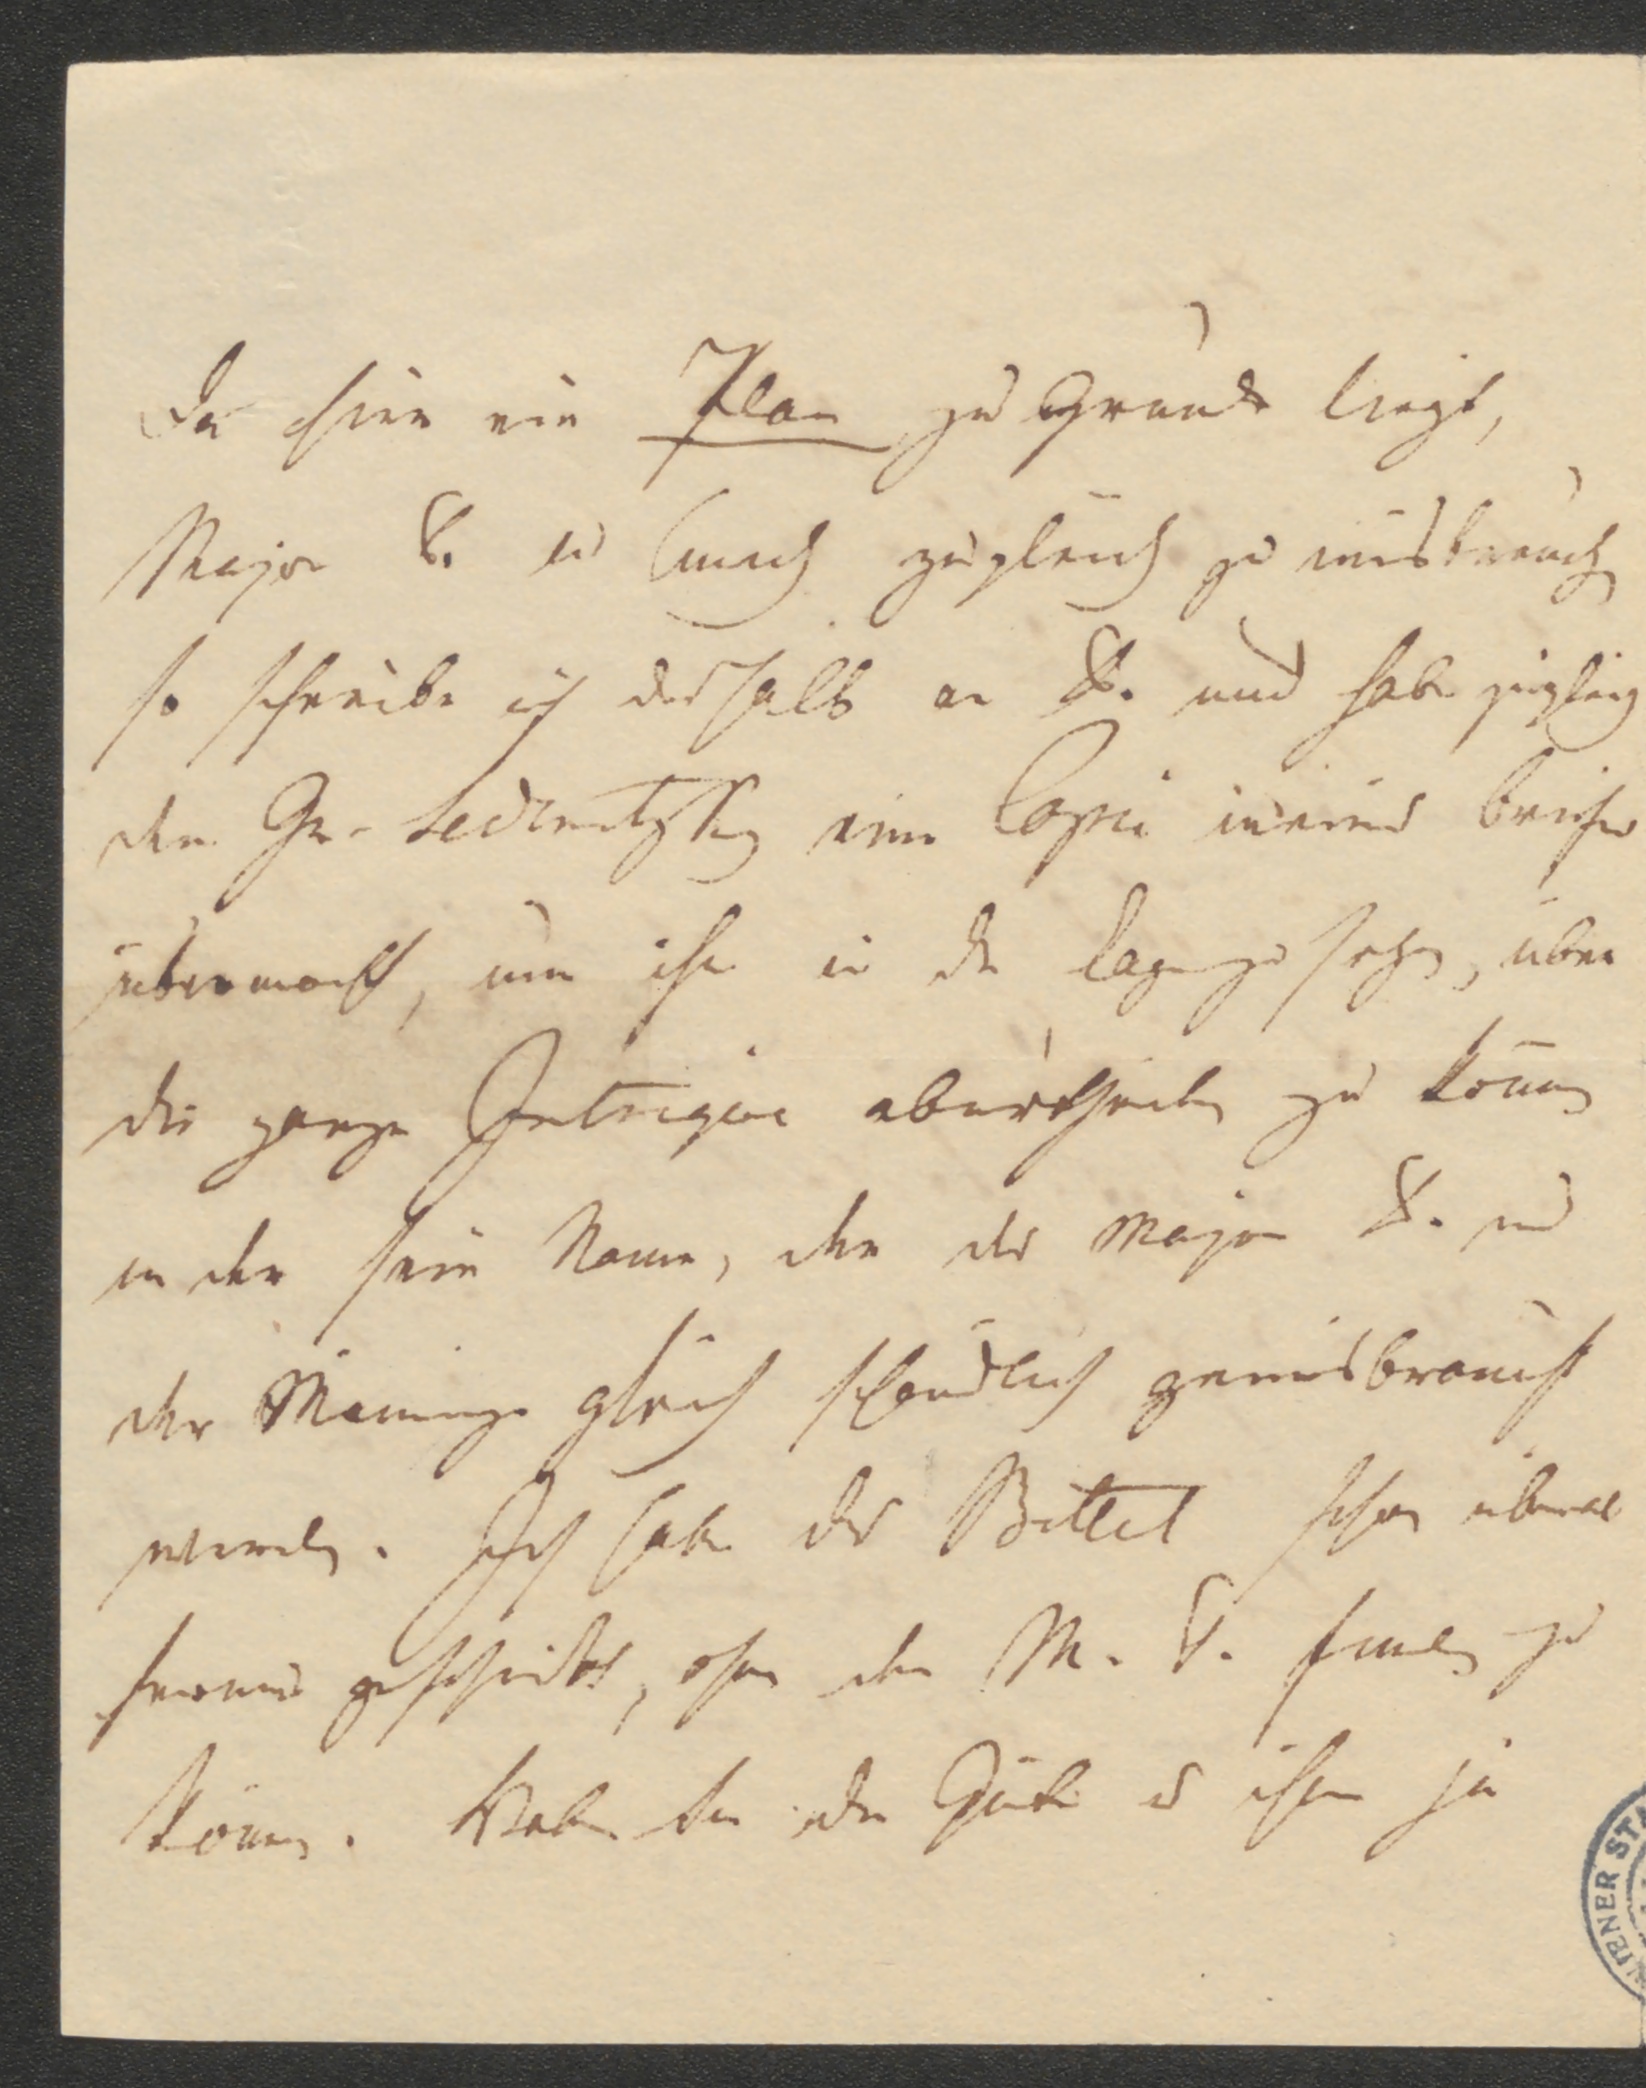 Da hier ein Plan zu Grunde liegt,
Major T. u mich zugleich zu misbrauch
so schreibe ich deshalb an T. und habe zugleich
dem Gr. Sedlnitzky eine Copie meines Briefes
übermacht, um ihn in die Lage zu setzen, über
die ganze Intrigue aburtheilen zu können
in der sein Name, der des Major T. und
der Meinige gleich schändlich gemisbraucht
werden. Ich habe das Billet schon überall
herum geschickt, ohne den M. T. finden zu
können. Haben Sie die Güte es ihm ja
WIENER STA